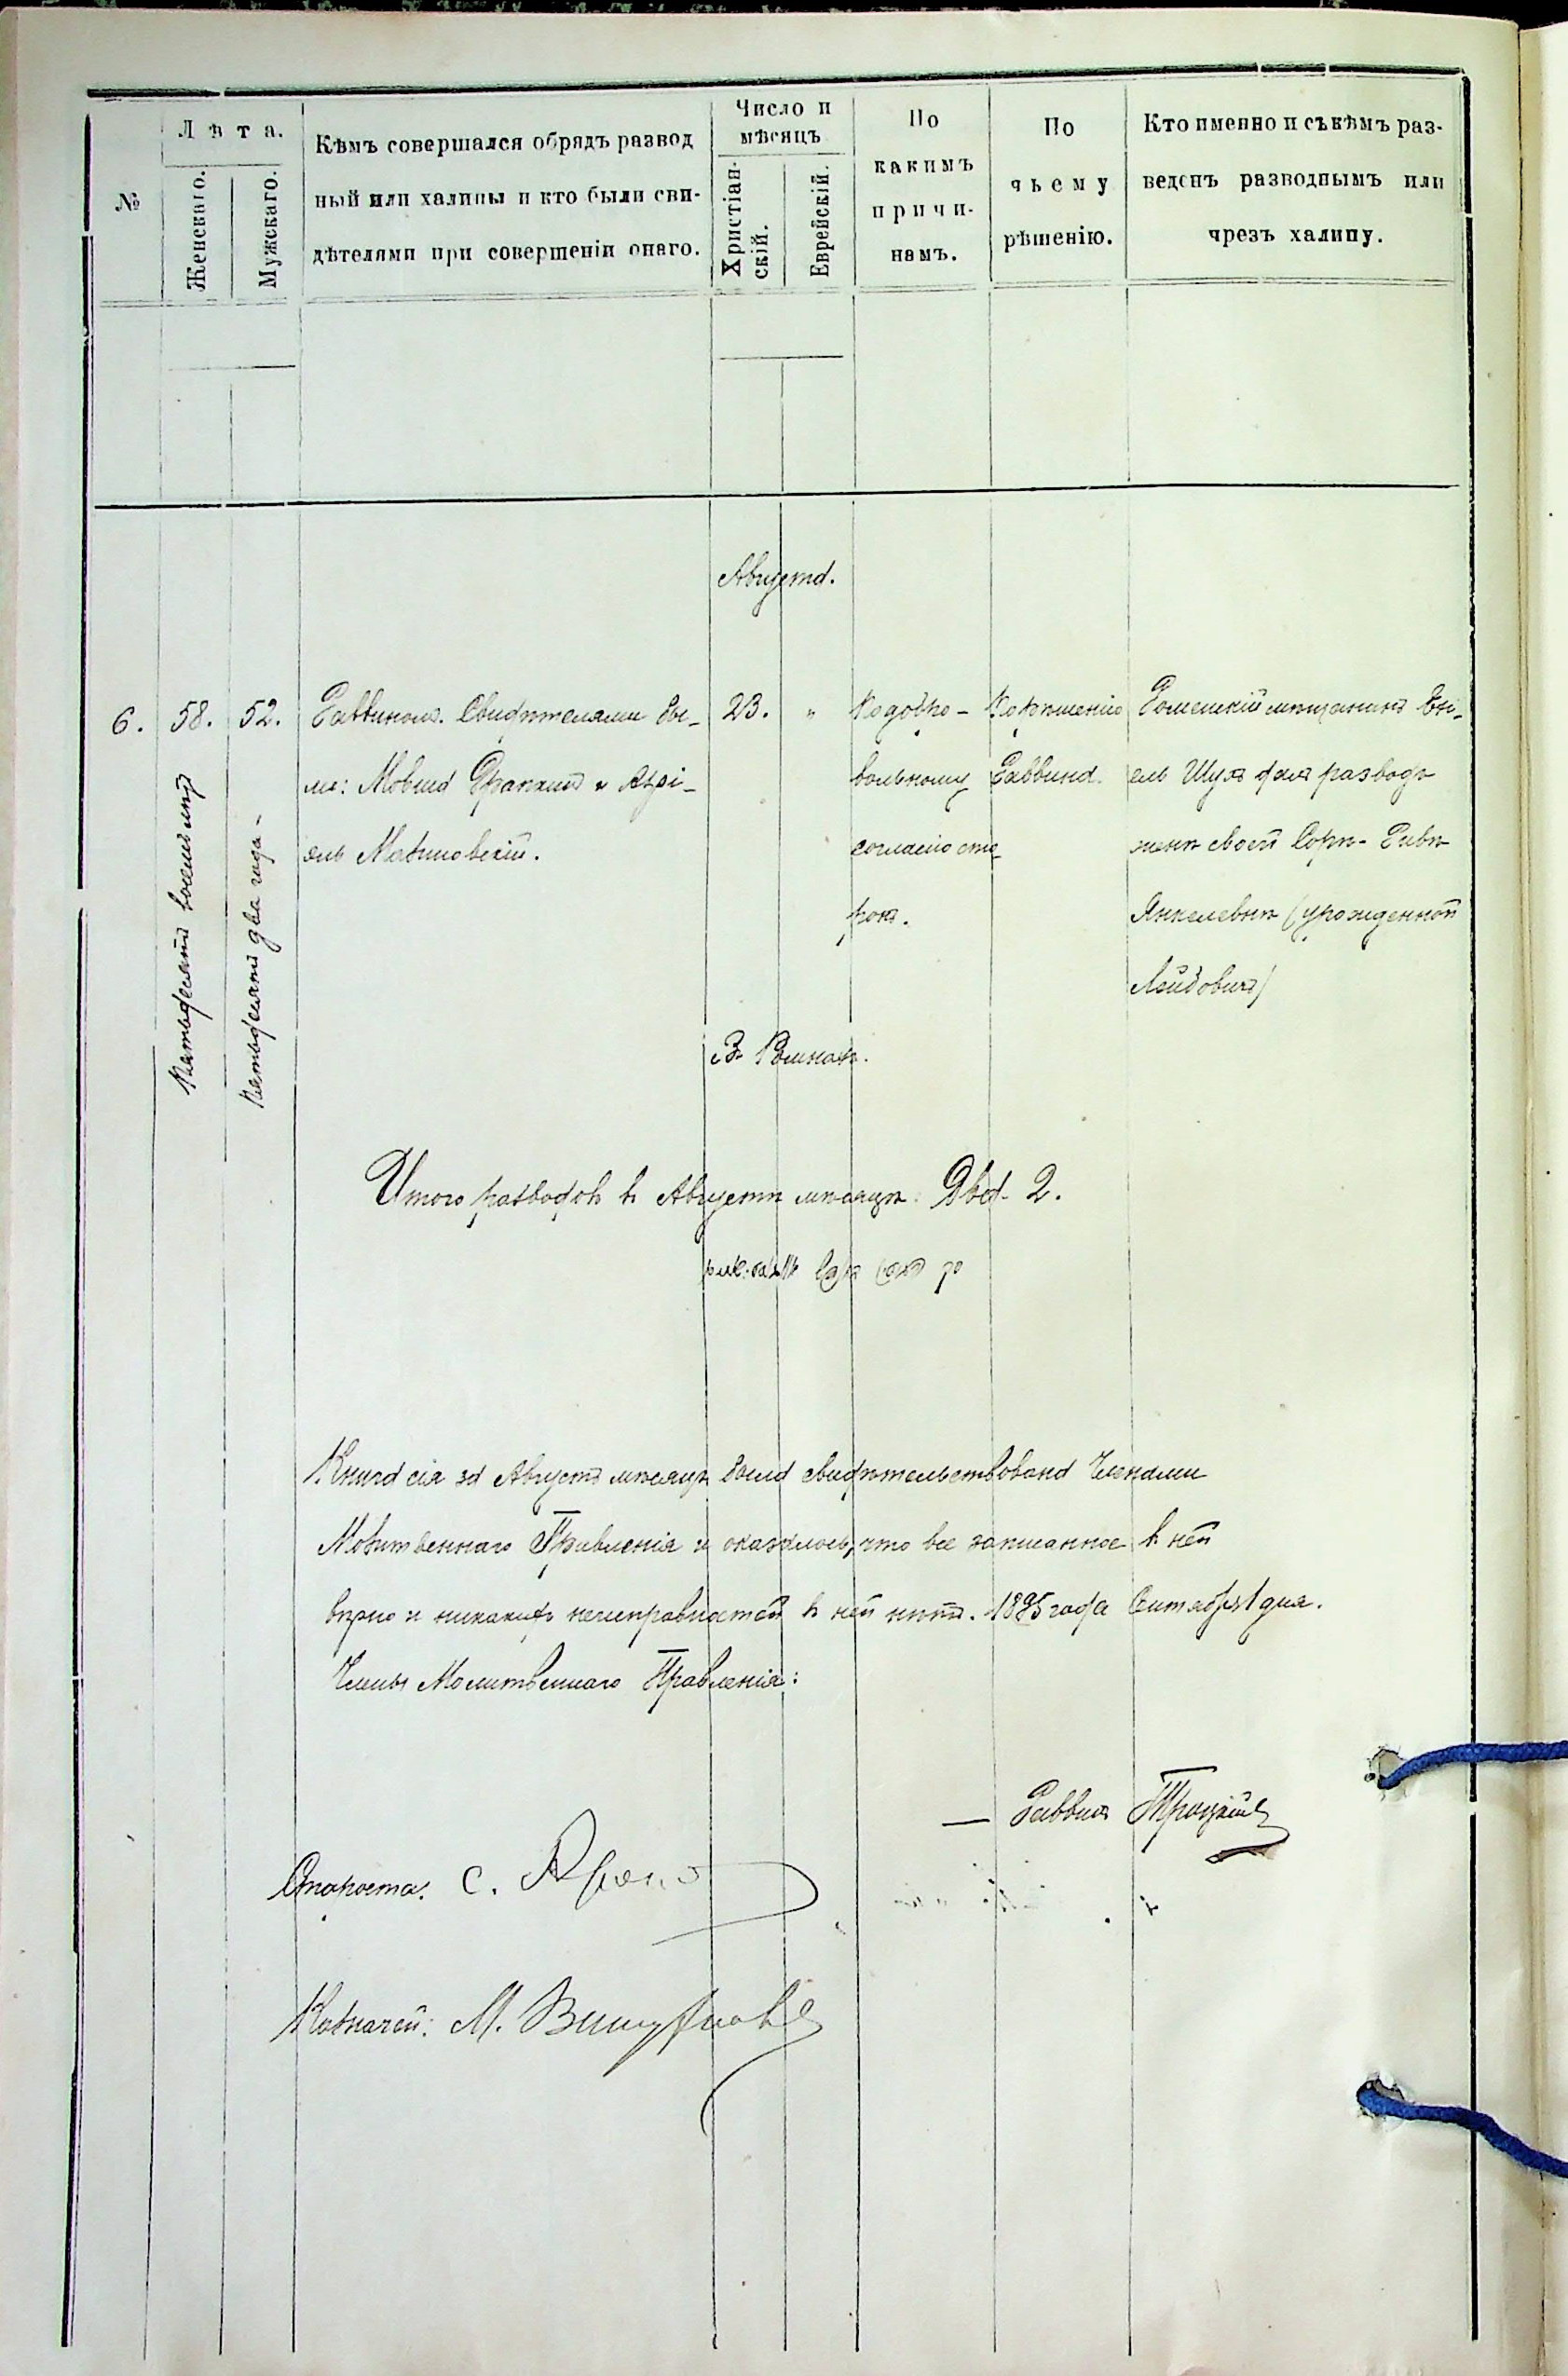 №
Лѣта.
Женскаго.
Мужскаго.
Кѣмъ совершался обрядъ развод
ный или халицы и кто были сви-
дѣтелями при совершеніи онаго.
Число и
мѣсяцъ
Христіан-
скій.
Еврейскій.
По
какимъ
причи-
намъ.
По
чьему
рѣшенію.
Кто именно и съ кѣмъ раз-
веденъ разводнымъ или
чрезъ халицу.
Августъ.
6.
58.
Пятьдесятъ восемь лѣтъ
52.
Пятьдесятъ два года -
Раввиномъ. Свидѣтелями бы-
ли: Мовша Франкинъ и Азрі-
эль
23.
"
По добро-
вольному
согласію сто
ронъ.
По рѣшенію
Раввина.
Роменскій мѣщанинъ
Шухъ далъ разводъ
женѣ своей Сорѣ-Ривѣ
Янкелевнѣ (урожденной
Лейбовичъ)
Въ Ромнахъ.
Итого разводовъ въ Августѣ мѣсяцѣ: Два - 2.
Книга сія за Августъ мѣсяцъ была свидѣтельствована Членами
Молитвеннаго Правленія и оказалось, что все записанное въ ней
вѣрно и никакихъ неисправностей въ ней нѣтъ. 1895 года Сентября 1 дня.
Члены Молитвеннаго Правленія:
— Раввинъ Троцкій
Староста: С.
Казначей: М.